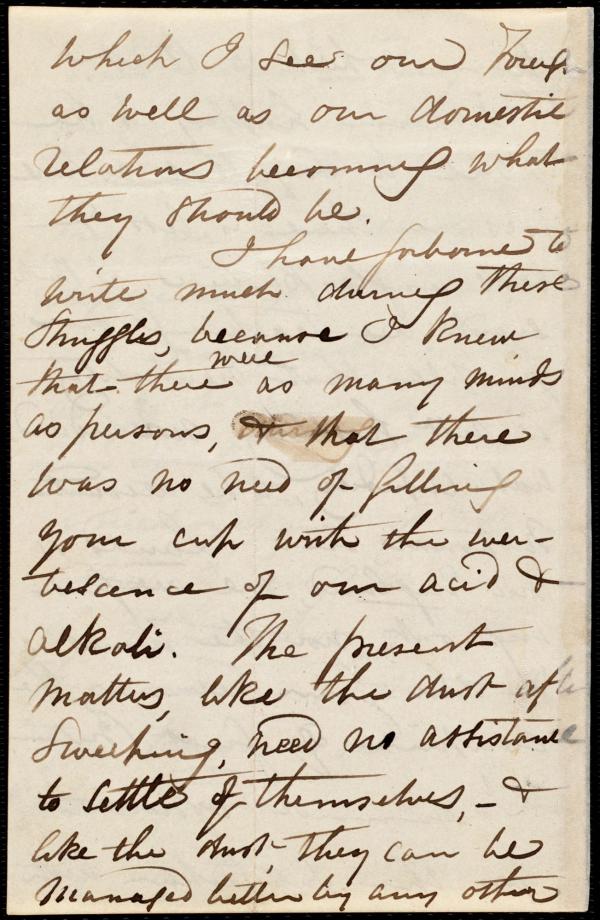 which I see our Foreign
as well as our domestic
relations becoming what
they should be.
I have forborne to
write much during these
struggles, because I knew
that there were as many minds
as persons, & that there
was no need of filling
your cup with the wer-
bescence of our acid &
alkali. The present
matters, like the dust after
sweeping, need no assistance
to settle of themselves, - &
like the dust, they can be
managed better by any other